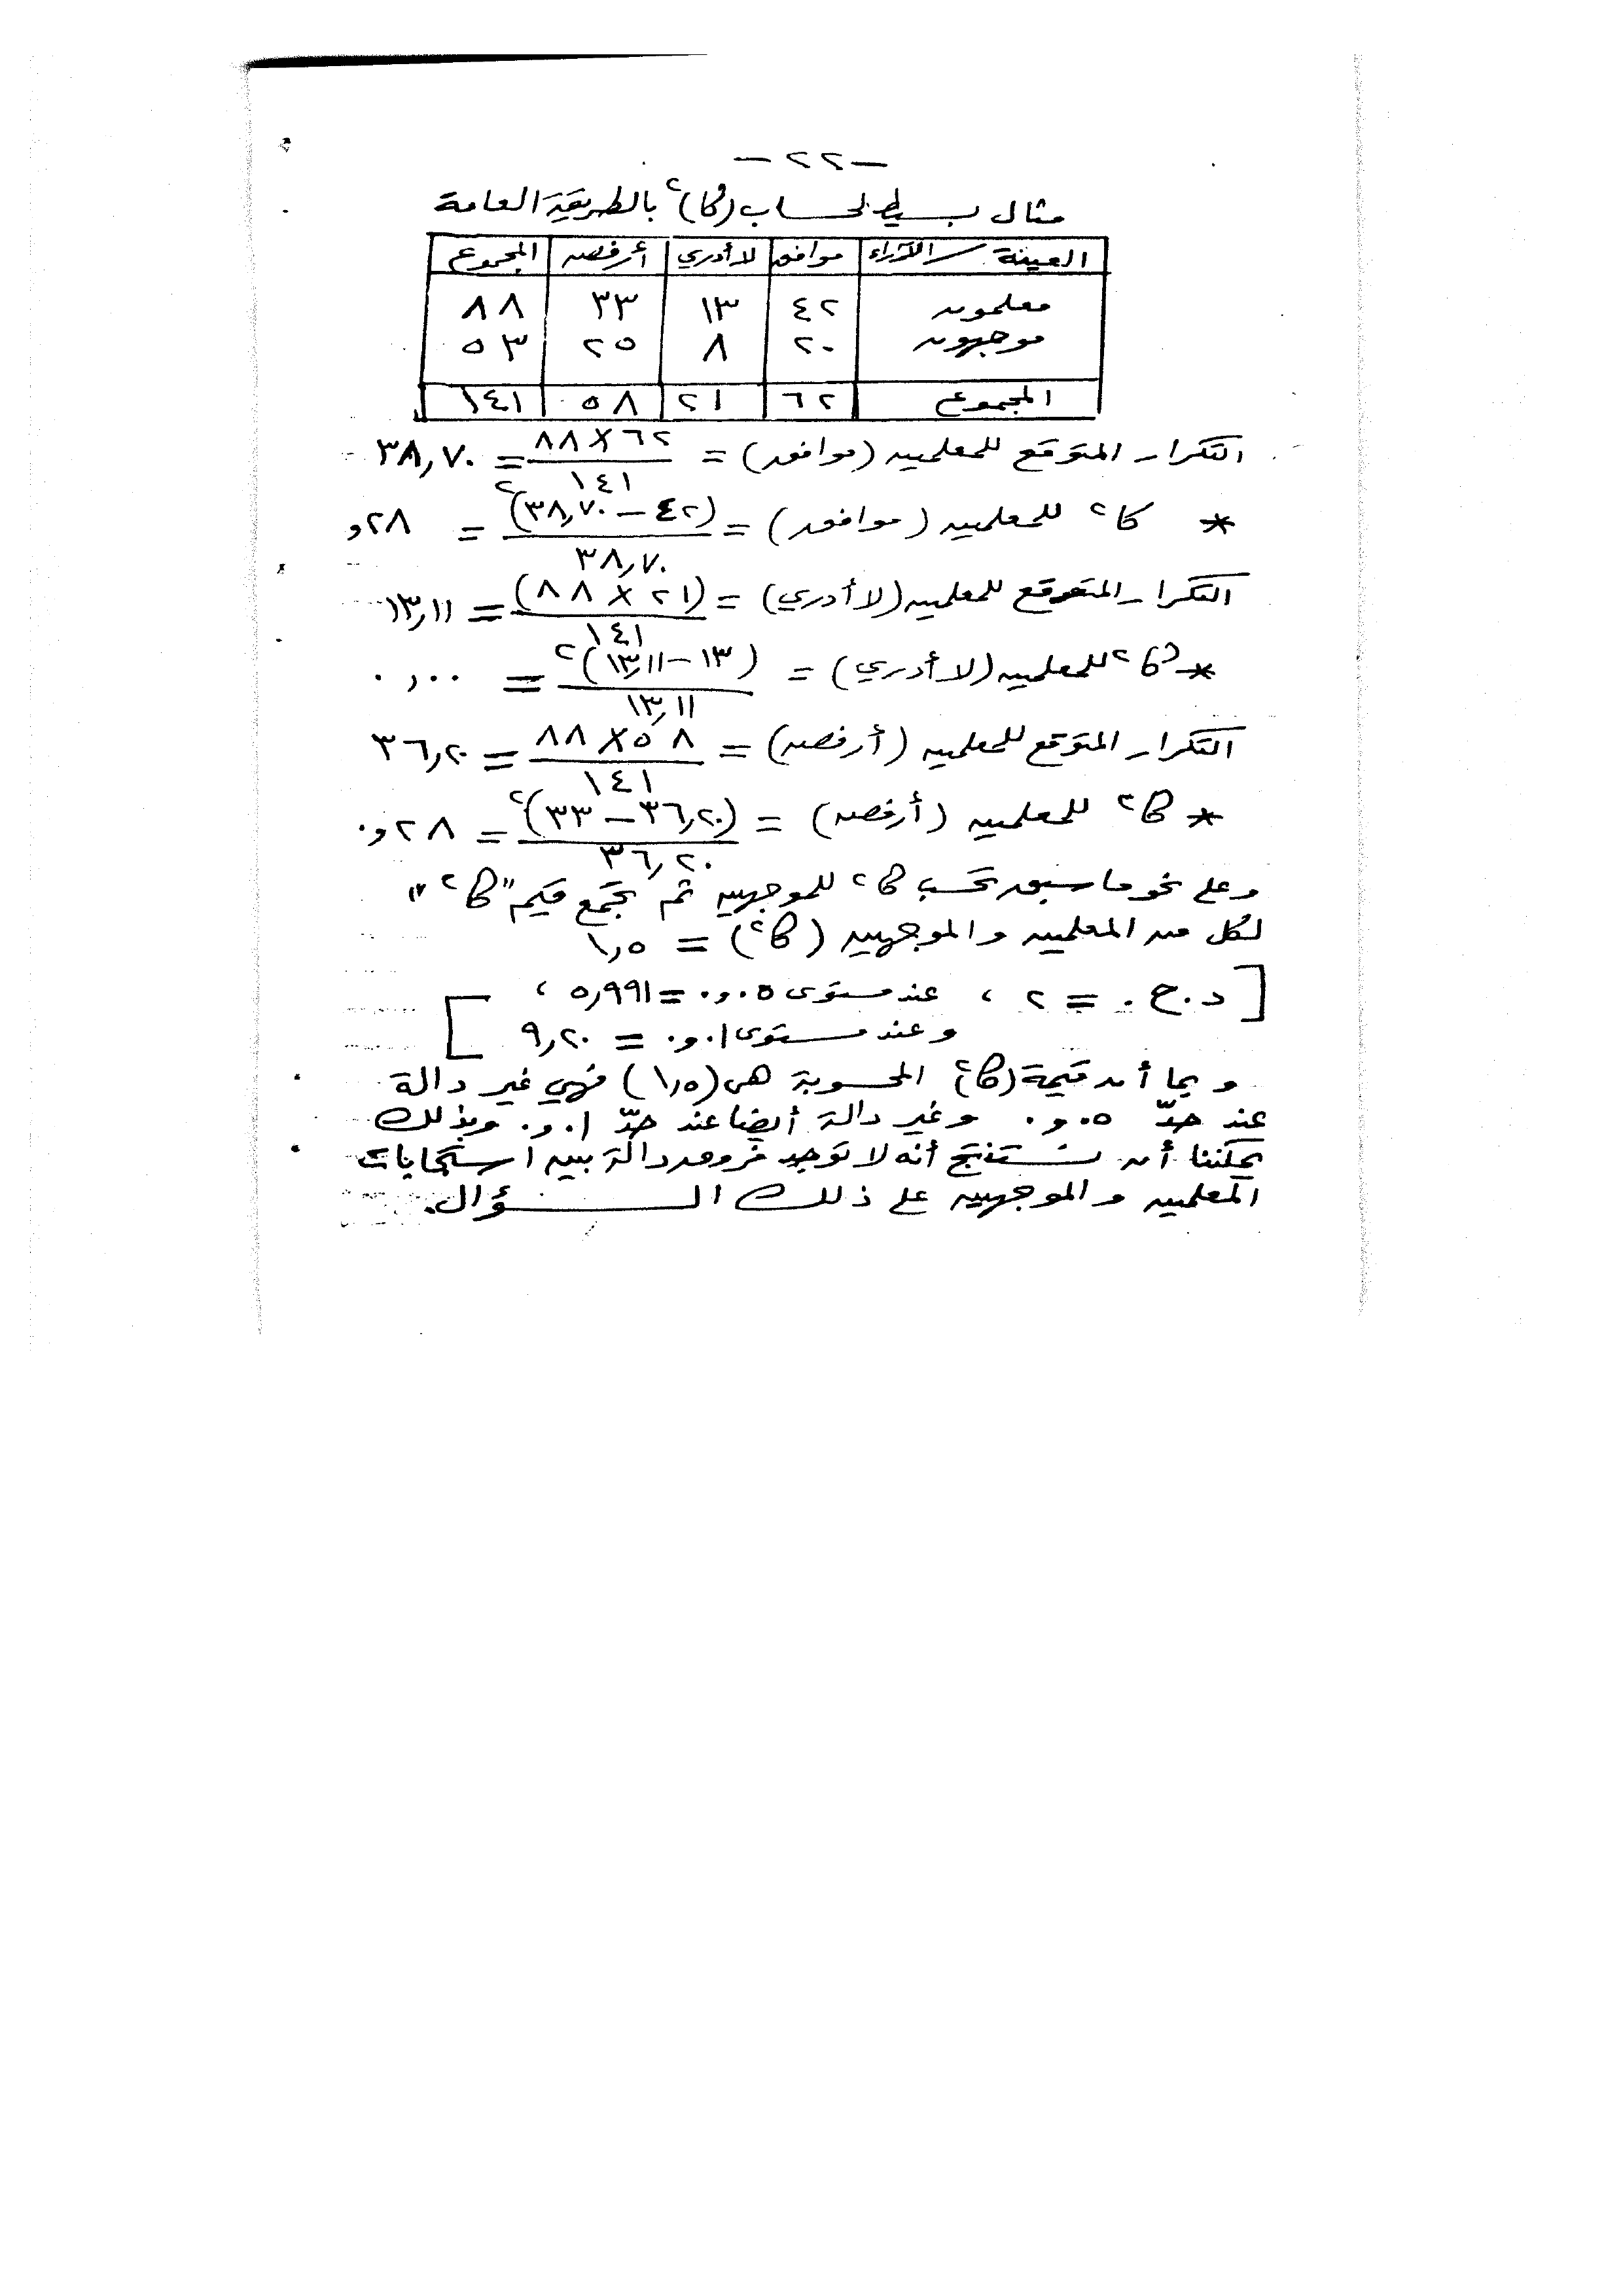 -٢٢-
مثال بسيط لحساب (كا)٢ بالطريقة العامة
العينة / الآراء | موافق | لا أدري | أرفض | المجموع
معلمون | ٤٢ | ١٣ | ٣٣ | ٨٨
موجهون | ٢٠ | ٨ | ٢٥ | ٥٣
المجموع | ٦٢ | ٢١ | ٥٨ | ١٤١
التكرار المتوقع للمعلمين (موافق) = ٦٢ × ٨٨ / ١٤١ = ٣٨,٧٠
* كا٢ للمعلمين (موافق) = (٤٢ – ٣٨,٧٠)٢ / ٣٨,٧٠ = ٢٨و
التكرار المتوقع للمعلمين (لا أدري) = (٢١ × ٨٨) / ١٤١ = ١٣,١١
* كا٢ للمعلمين (لا أدري) = (١٣ – ١٣,١١)٢ / ١٣,١١ = ٠,٠٠
التكرار المتوقع للمعلمين (أرفض) = ٥٨ × ٨٨ / ١٤١ = ٣٦,٢٠
* كا٢ للمعلمين (أرفض) = (٣٦,٢٠ – ٣٣)٢ / ٣٦,٢٠ = ٢٨و٠
وعلى نحو ما سبق تحسب كا٢ للموجهين ثم تجمع قيم "كا٢"
لكل من المعلمين والموجهين (كا٢) = ١,٥
[د.ح. = ٢ ، عند مستوى ٠٥و٠ = ٥,٩٩١ ،
وعند مستوى ٠١و٠ = ٩,٢٠]
وبما أن قيمة (كا٢) المحسوبة هى (١,٥) فهي غير دالة
عند حدّ ٠٥و٠ وغير دالة أيضا عند حدّ ٠١و٠ وبذلك
يمكننا أن نستنتج أنه لا توجد فروق دالة بين استجابات
المعلمين والموجهين على ذلك السؤال.